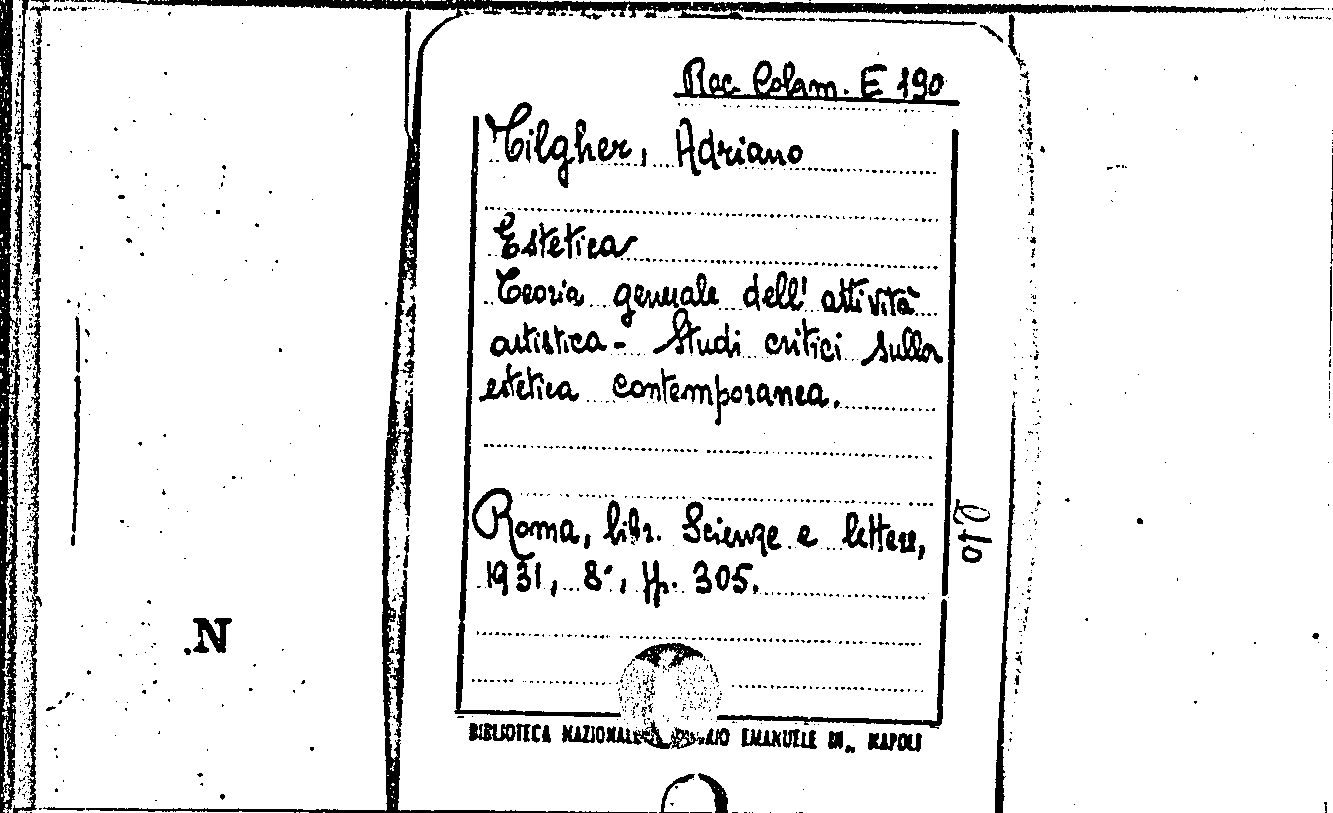 Rac. Colam. E 190
Tilgher, Adriano
Estetica
Teoria generale dell'attività
artistica - Studi critici sulla
estetica contemporanea.
Roma, libr. Scienze e lettere,
1931, 8°, pp. 305.
BIBLIOTECA NAZIONALE EMANUELE III„ NAPOLI
N.